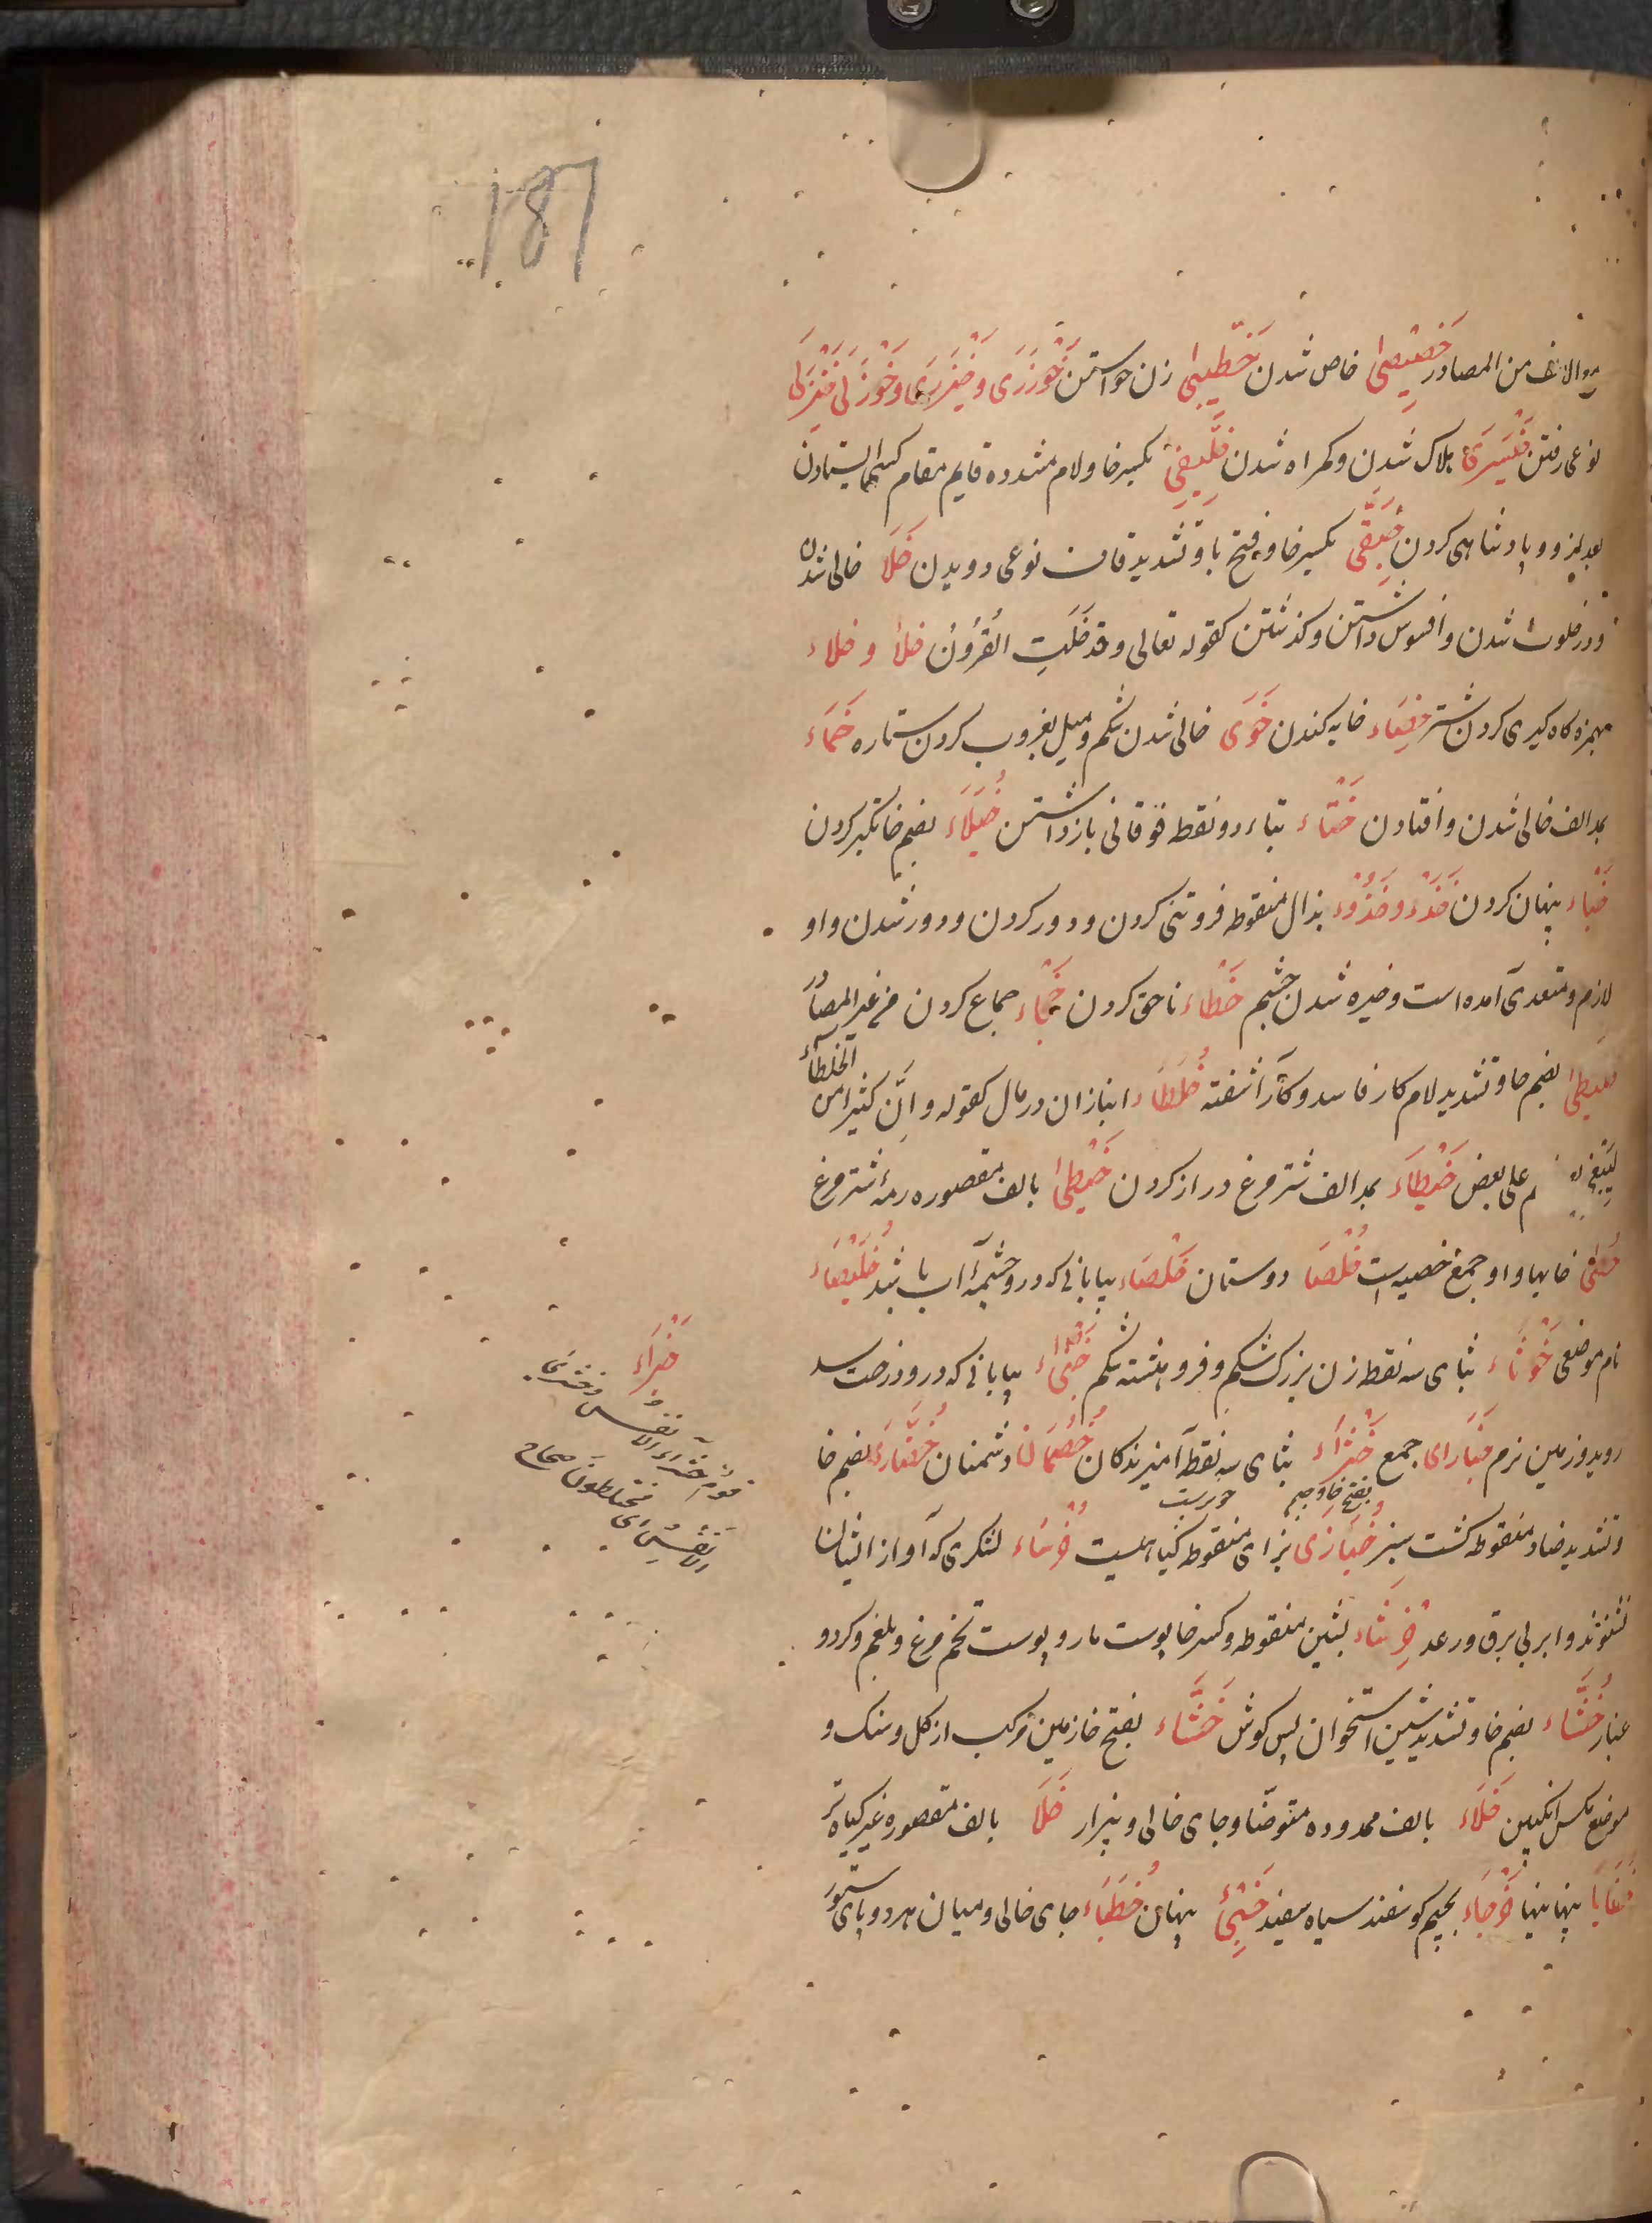 187
مع الالف من المصادر خِصِّيصىٰ خاص شدن خِطِّيبىٰ زن خواستن خَوْزَرَى وخَيْزَرَى وخَوْزَلى خَيْزَلى
نوعی رفتن خَيْسَرىٰ هلاک شدن و کمراه شدن خِلِّيفىٰ بکسر خا و لام مشدده قایم مقام کسی ایستادن
بعد از و و پادشاهی کردن خِبِقَّى بکسر خا و فتح با و تشدید قاف نوعی دویدن خَلَا خالی شدن
و در خلوت شدن و افسوس داشتن و کذشتن کقوله تعالی وقد خَلَتِ القُرُونُ خلأ و خلاء
بهمزه کاه کیری کردن شتر خِصَاء خایه کندن خَوَى خالی شدن شکم و میل بغروب کردن ستاره خَوَاء
بمد الف خالی شدن و افتادن خَتَاء بتاء دو نقطه فوقانی باز داشتن خُيَلَاء بضم خا تکبر کردن
خَبْاء پنهان کردن خَذْء وخُذُوْء بذال منقوطه فروتنی کردن و دور کردن و دور شدن و او
لازم و متعدی آمده است و خیره شدن چشم خَطَاء ناحق کردن خَجْاء جماع کردن من غیر المصادر
بضم خا و تشدید لام کار فاسد و کار آشفته خُلَطَاء انبازان در مال کقوله و اِنَّ کثیرا من الخلطاء
لَيَبْغي علی بعض خَيْطَاء بمد الف شتر مرغ دراز کردن خَيْطىٰ بالف مقصوره رمهٔ شتر مرغ
خُصىٰ خایها و او جمع خصیه است خُلَصَا دوستان خَلْصَاء بیابانی که در و چشمهٔ آب باشد خُلَيْصَاء
نام موضعی خَوْثَاء بثای سه نقطه زن بزرک شکم و فرو هشته شکم خَبْرَاء بیابانی که در و درخت سدر
روید و زمین نرم خَبَارى جمع خَثْرَاء بثای سه نقطه آمیزندکان خُصَمَا دشمنان خُضَّارَى بضم خا
و تشدید ضاد منقوطه کشت سبز خُبَازى بزای منقوطه کیاهیست خُرْسَاء لشکری که آواز ایشان
نشنوند و ابر بی برق و رعد خِرْشَاء بشین منقوطه و کسر خا پوست مار و پوست تخم مرغ و بلغم و کرد و
غبار خُشَّاء بضم خا و تشدید شین استخوان پس کوش خَشَّاء بفتح خا زمین مرکب از کل و سنک و
موضع مکس انکبین خَلَاء بالف ممدوده متوضّا و جای خالی و بیزار خَلَا بالف مقصوره غیر کیاه تر
خَفَايا پنهانیها خَرْجَاء بجیم کوسفند سیاه سفید خَبِئ پنهان خُطَبَاء جای خالی و میان هر دو پای ستور
خَثْرَاء
قوم خثراء الانفس وخثرى
الانفس ای مختلطون صحاح